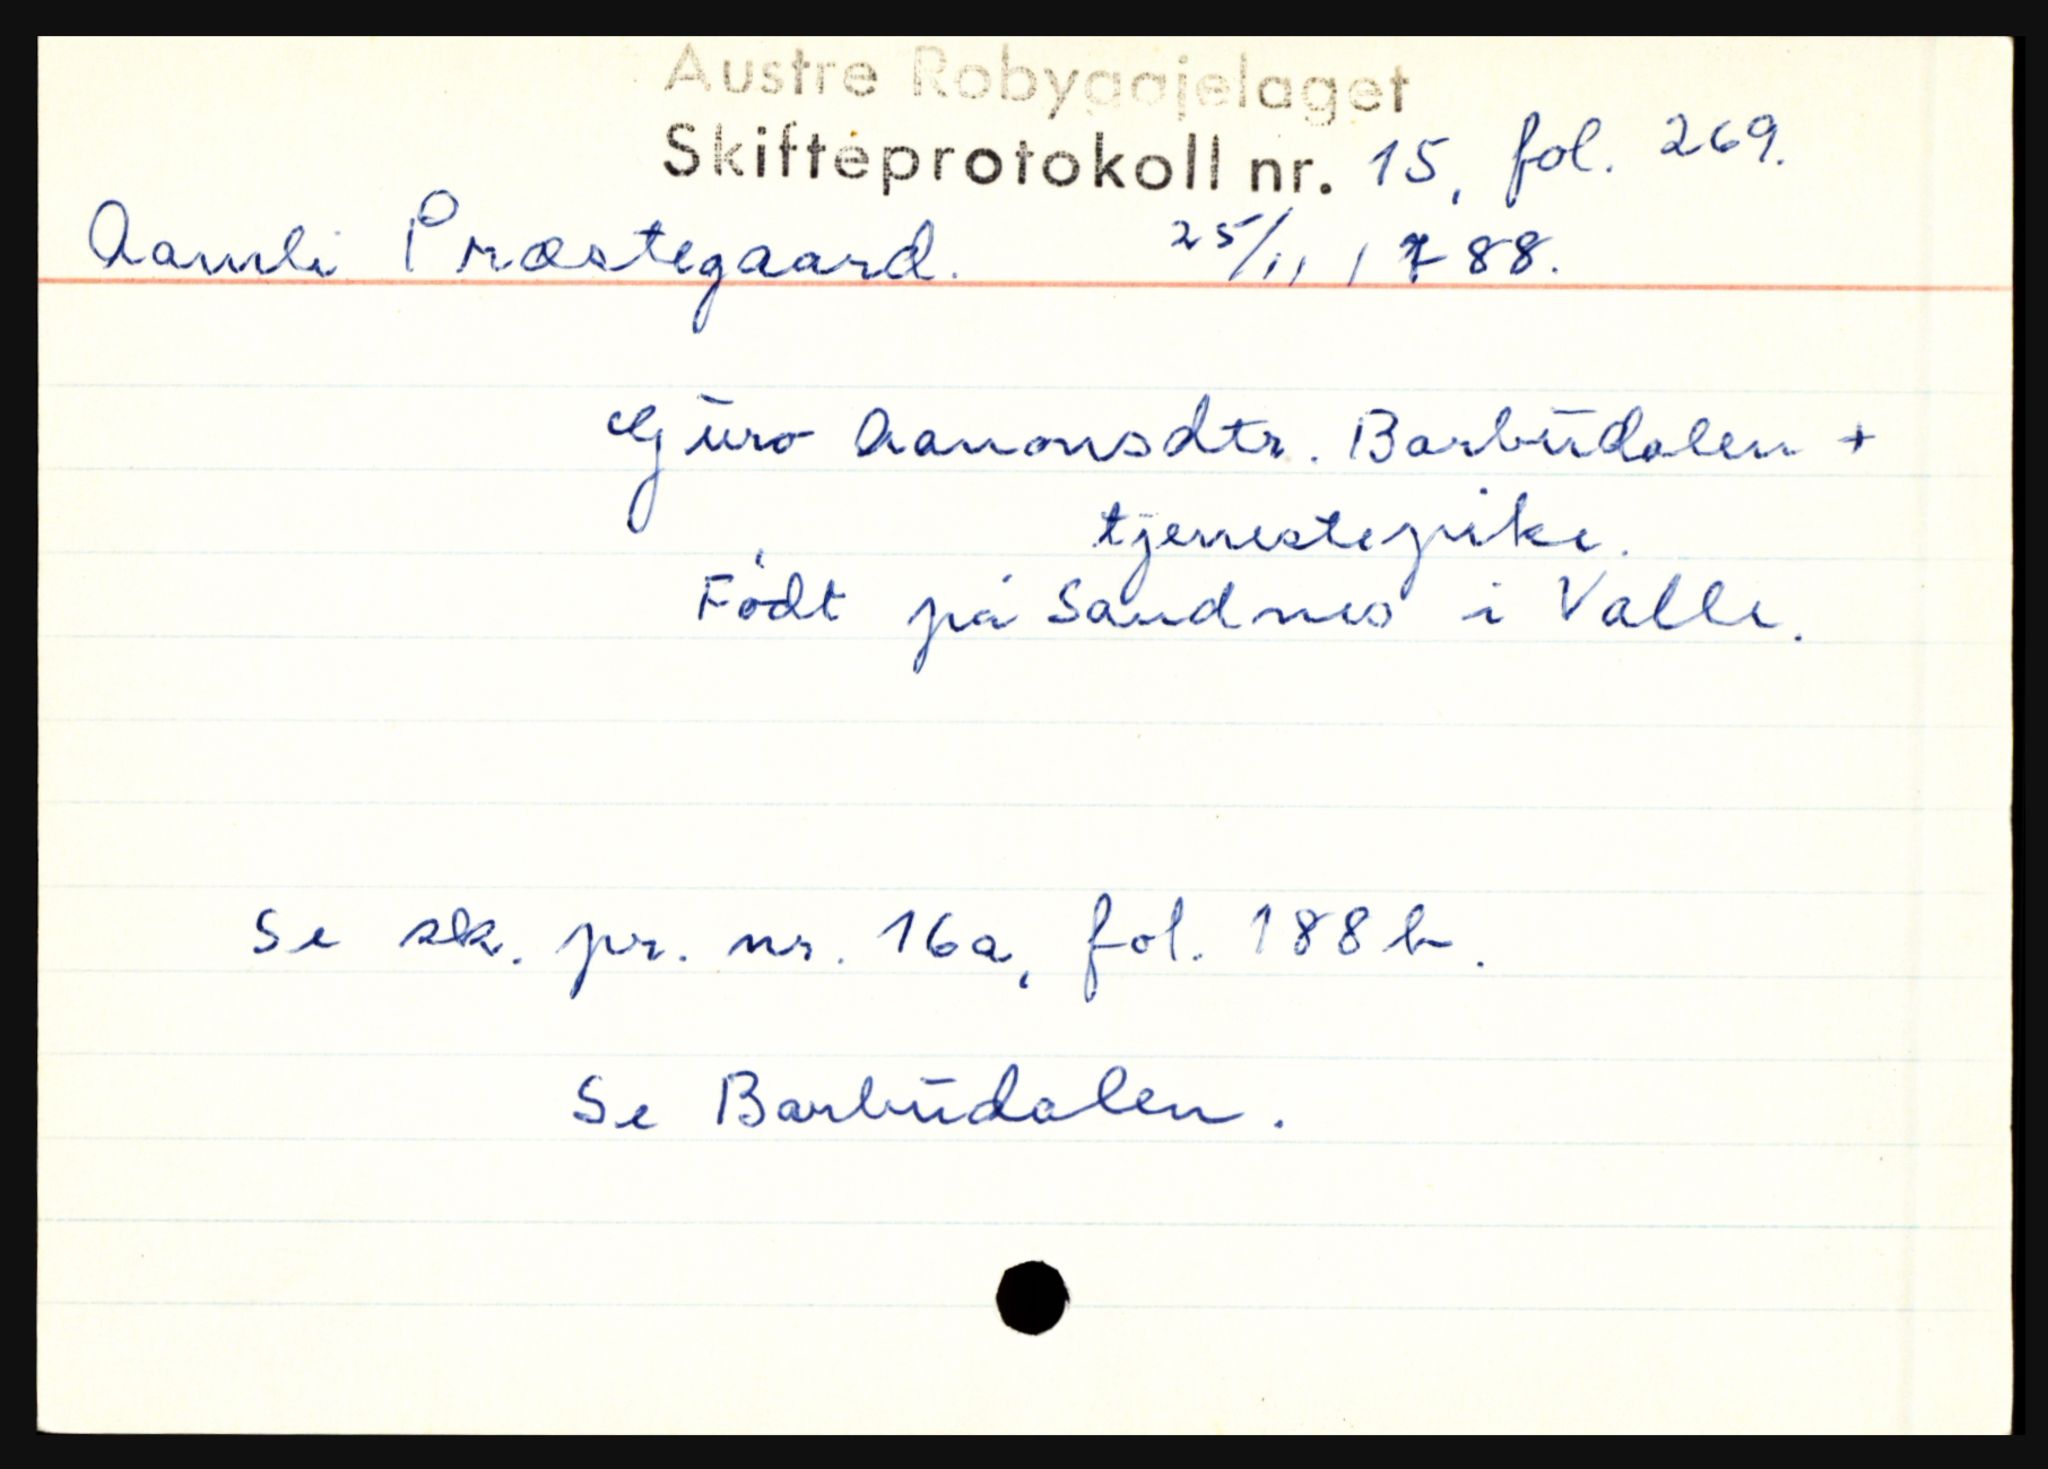 Austre Robyggjelaget
Skifteprotokoll nr. 15, fol. 269.
Aamli Præstegaard. 25/11 1788.
Gūro Aanonsdtr. Barbūdalen +
tjenestepike.
Födt på Sandnes i Valle.
Se sk. pr. nr. 16a, fol. 188 b.
Se Barbūdalen.